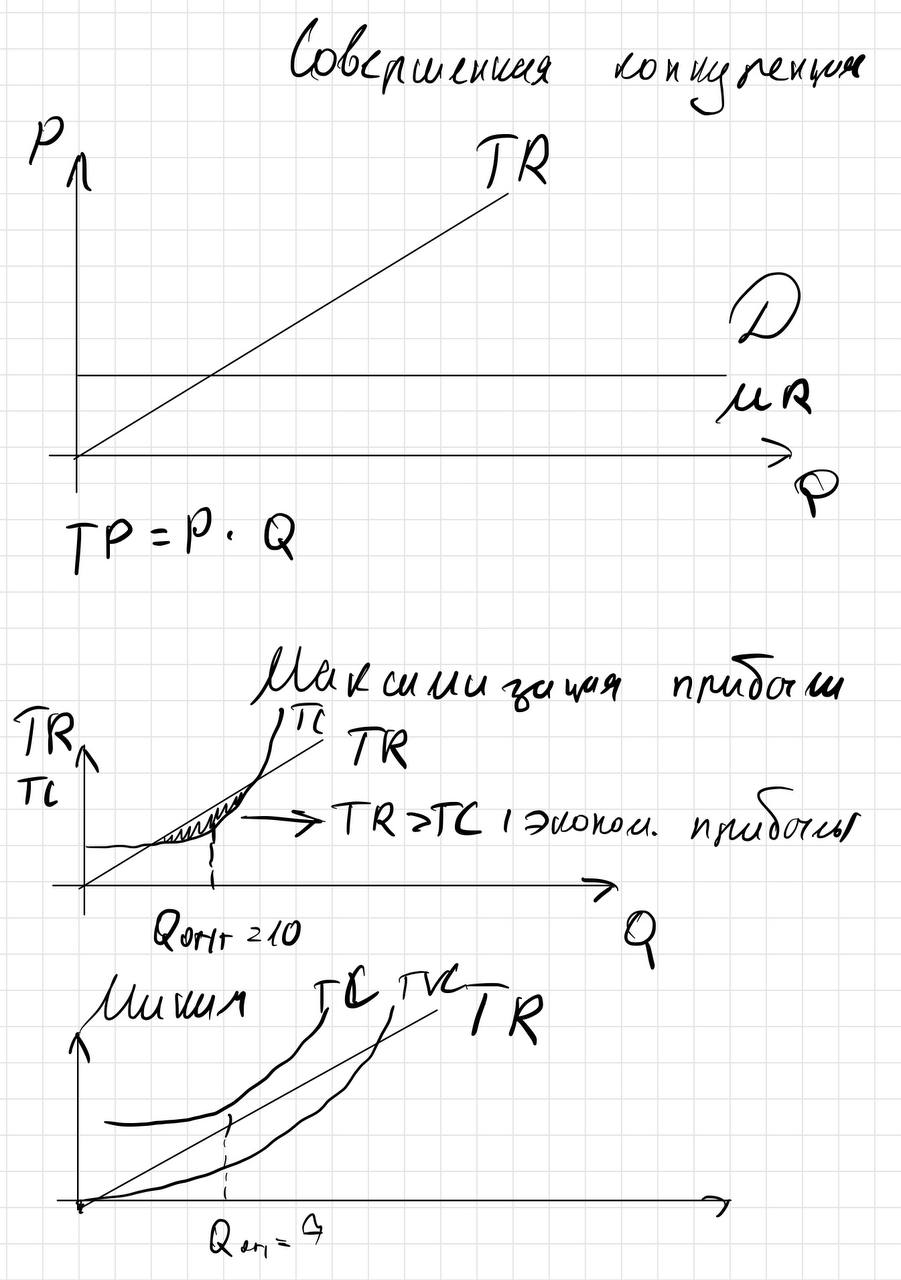 Совершенная конкуренция
P
TR
D
MR
TP = P · Q
Максимизация прибыли
TR
TC
TC
TR
TR > TC | эконом. прибыль
Qопт = 10
Q
Миним
TC
TVC
TR